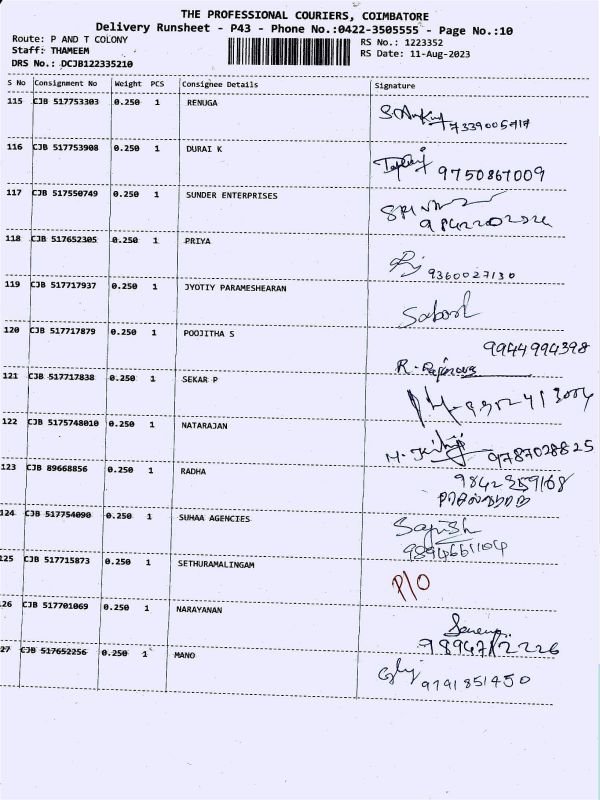 THE PROFESSIONAL COURIERS, COIMBATORE
Delivery Runsheet - P43 - Phone No.:0422-3505555 - Page No.:10
Route: P AND T COLONY
RS No.: 1223352
Staff: THAMEEM
RS Date: 11-Aug-2023
DRS No.: DCJB122335210
S No Consignment No Weight PCS Consignee Details Signature
115 CJB 517753303 0.250 1 RENUGA
7339005717
116 CJB 517753908 0.250 1 DURAI K
9750867009
117 CJB 517550749 0.250 1 SUNDER ENTERPRISES
118 CJB 517652305 0.250 1 PRIYA
9360027130
119 CJB 517717937 0.250 1 JYOTIY PARAMESHEARAN
120 CJB 517717879 0.250 1 POOJITHA S
9944994398
121 CJB 517717838 0.250 1 SEKAR P
122 CJB 5175748010 0.250 1 NATARAJAN
9787028825
123 CJB 89668856 0.250 1 RADHA
9842359168
124 CJB 517754090 0.250 1 SUHAA AGENCIES
9894661104
125 CJB 517715873 0.250 1 SETHURAMALINGAM
P/O
126 CJB 517701069 0.250 1 NARAYANAN
9894712226
127 CJB 517652256 0.250 1 MANO
9791851450